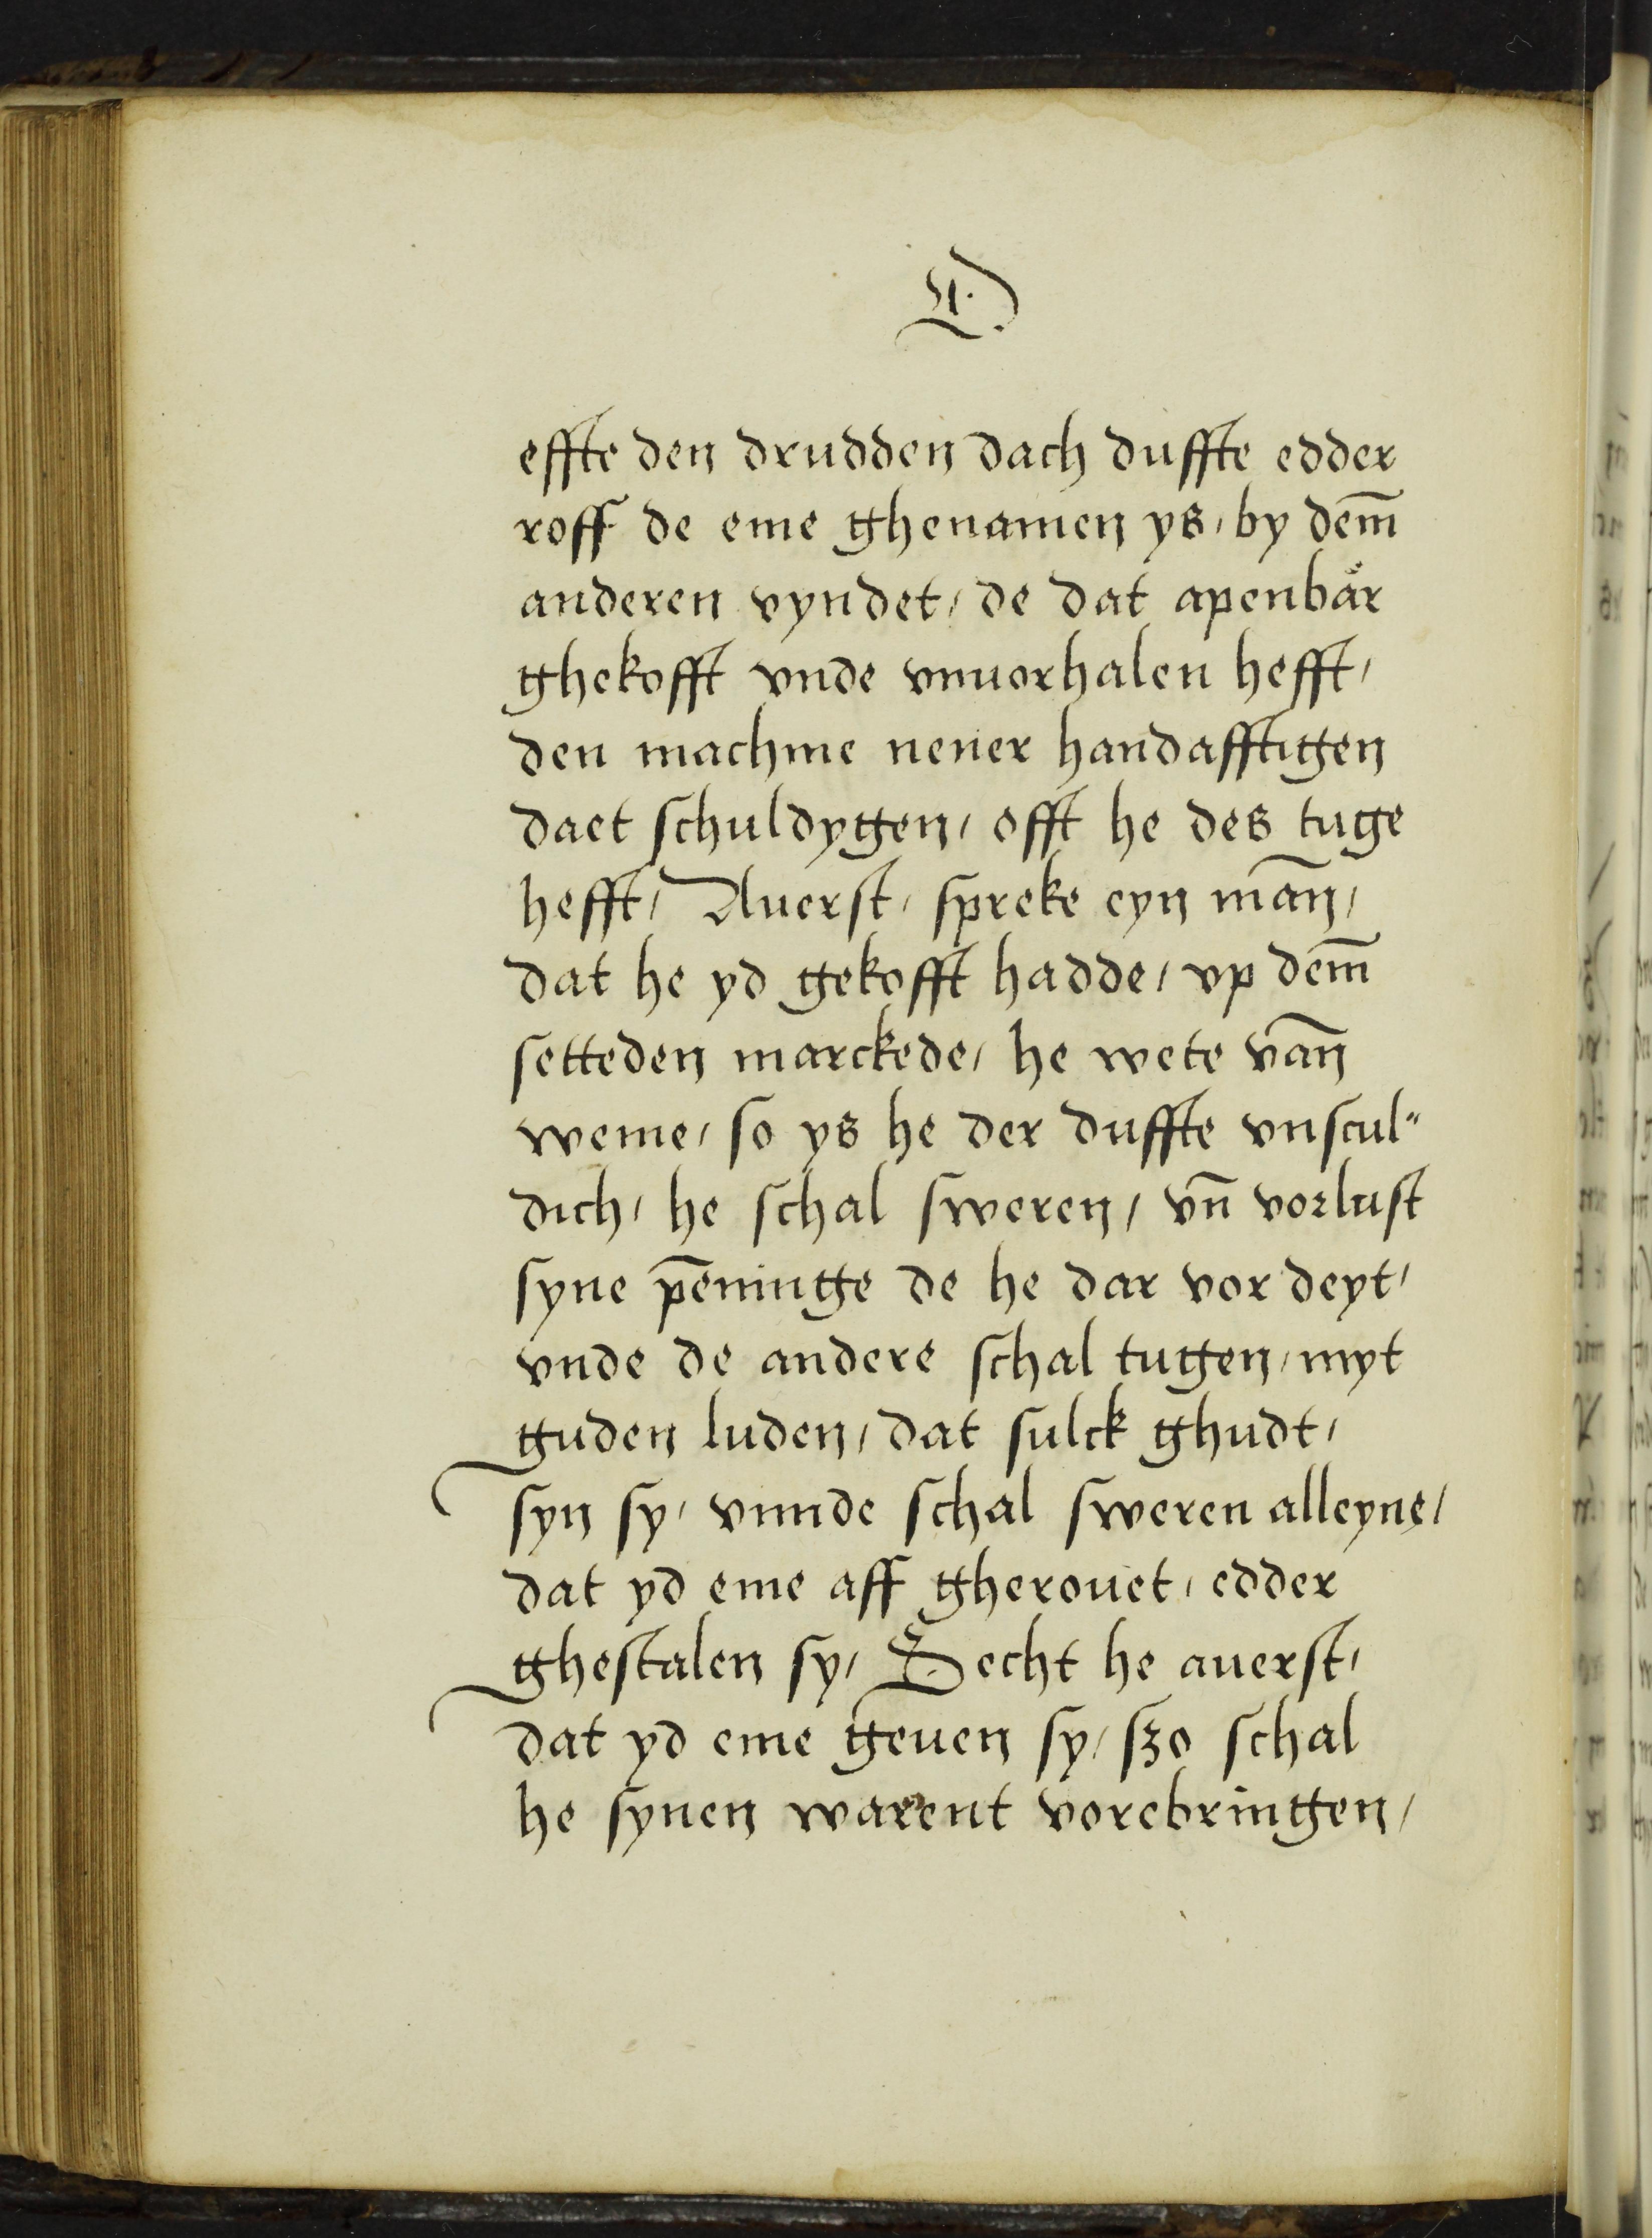 effte den drudden dach duffte edder
roff de eme ghenamen ys, by dem̄
anderen vyndet, de dat apenbår
ghekofft vnde vnuorhalen hefft,
den machme nener handafftigen
daet schuldygen, offt he des tuge
hefft, Auerst, spreke eyn man̄,
dat he yd gekofft hadde, vp dem̄
setteden marckede, he wete van̄
weme, so ys he der duffte vnscul"
dich, he schal sweren, vn̄ vorlust
syne pēninge de he dar vor deyt,
vnde de andere schal tugen, myt
guden luden, dat sulck ghudt,
syn sy, vnnde schal sweren alleyne,
dat yd eme aff gherouet, edder
ghestalen sy, Secht he auerst,
dat yd eme geuen sy, szo schal
he synen warent vorebringen,